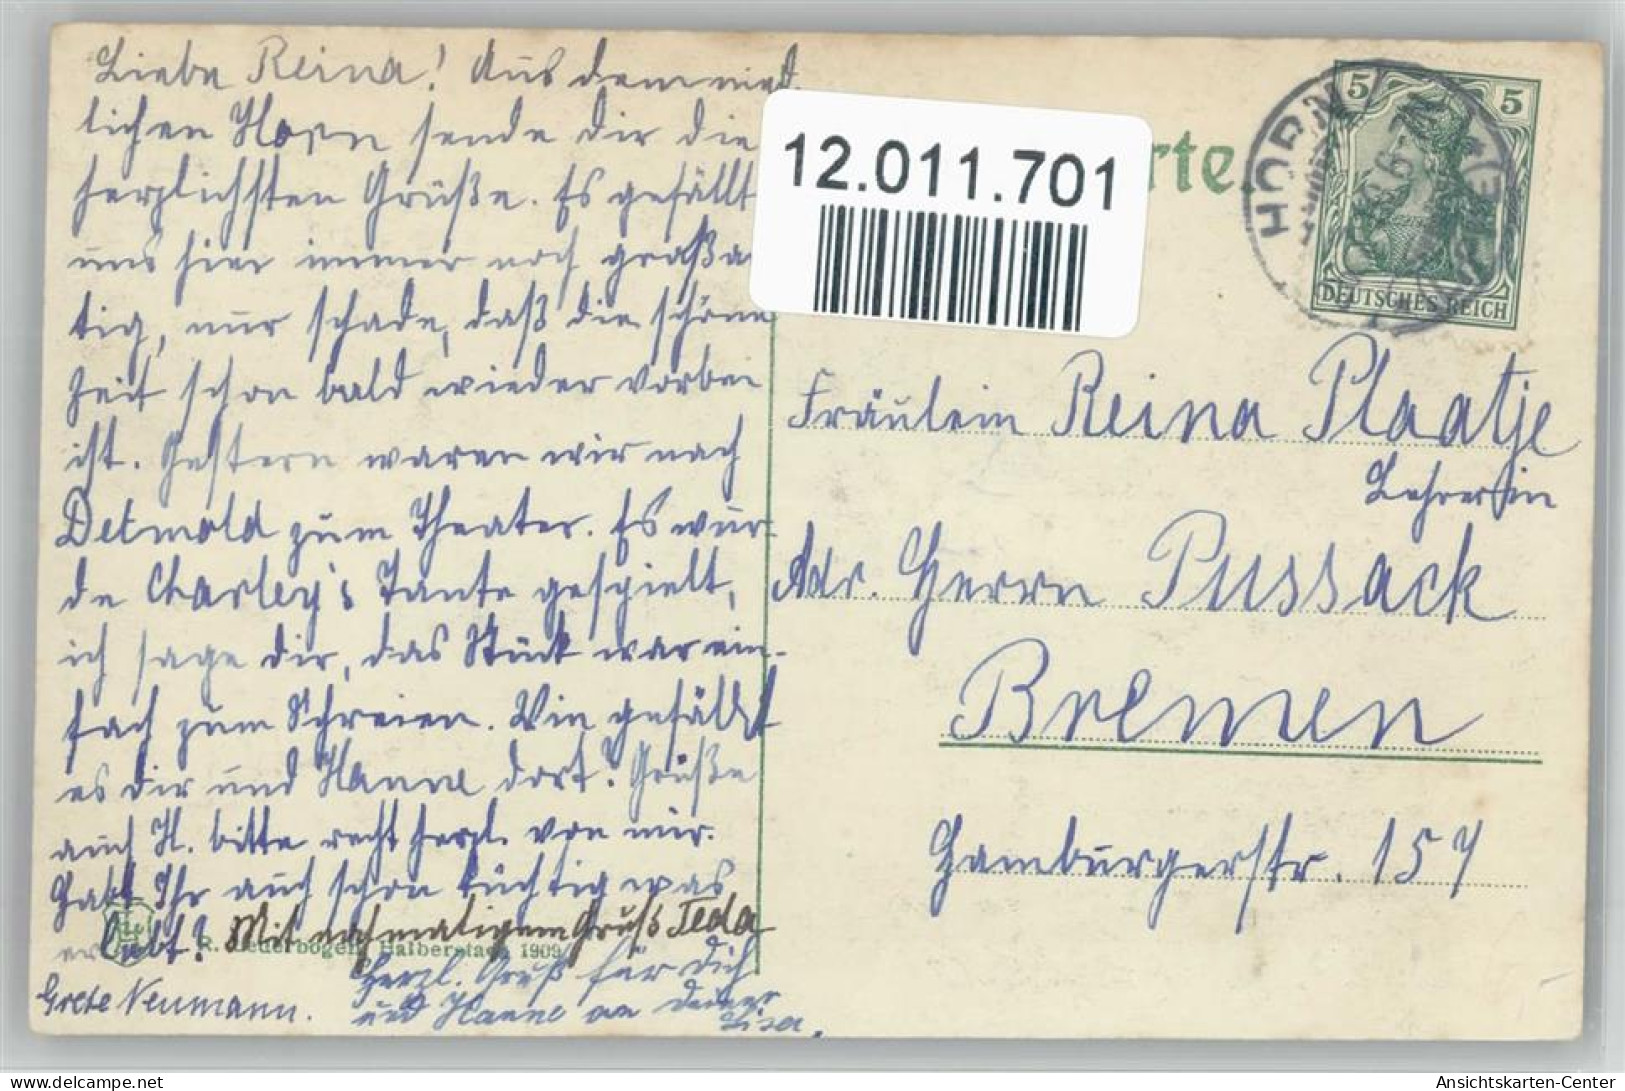 Liebe Reina! Aus dem nied-
lichen Horn sende dir die
herzlichsten Grüße. Es gefällt
uns hier immer noch großar
tig, nur schade, daß die schöne
Zeit schon bald wieder vorbei
ist. Gestern waren wir nach
Detmold zum Theater. Es wur-
de Charley's Tante gespielt,
ich sage dir, das Stück war ein-
fach zum Schreien. Wie gefällt
es dir und Hanne dort? Grüße
auch H. bitte recht herzl. von mir.
Habt Ihr auch schon tüchtig was
erlebt? Mit nochmaligem Gruß Teda
R. Lederbogen, Halberstadt 1909
Herzl. Gruß für dich
und Hanne an deiner
Lisa.
Grete Neumann.
12.011.701
rte
HORN
5 5
DEUTSCHES REICH
Fräulein Reina Plaatje
Lehrerin
Adr. Herrn Pussack
Bremen
Hamburgerstr. 157
delcampe.net
Ansichtskarten-Center